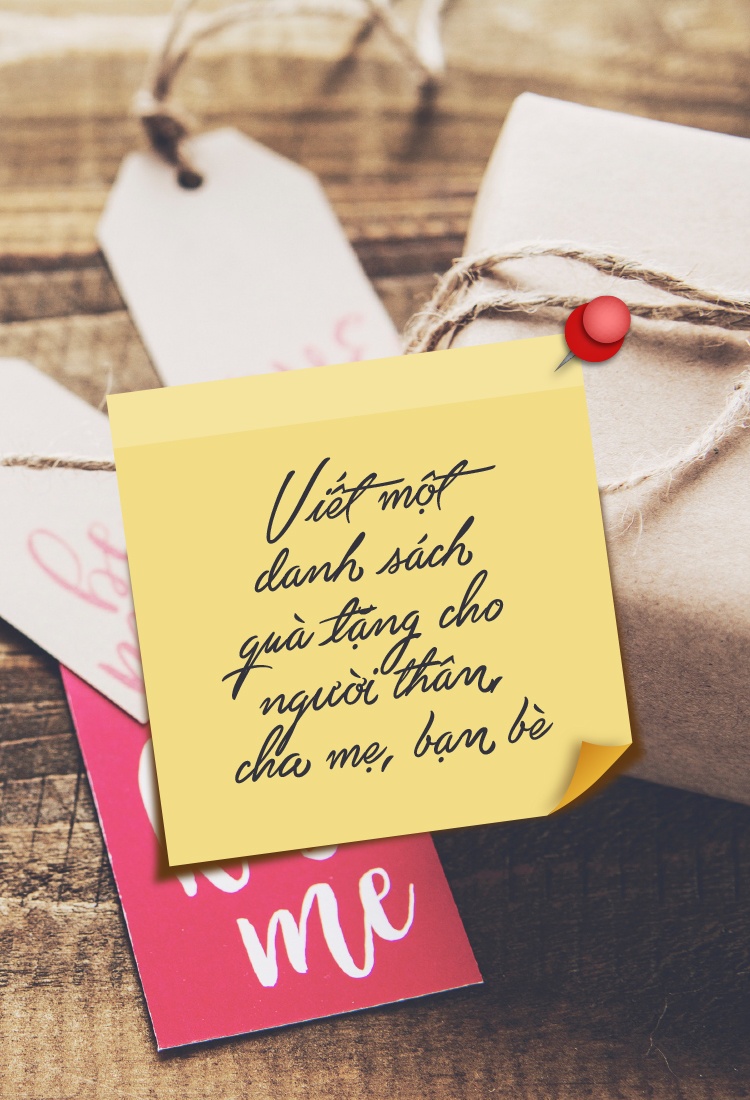 Viết một
danh sách
quà tặng cho
người thân,
cha mẹ, bạn bè
me